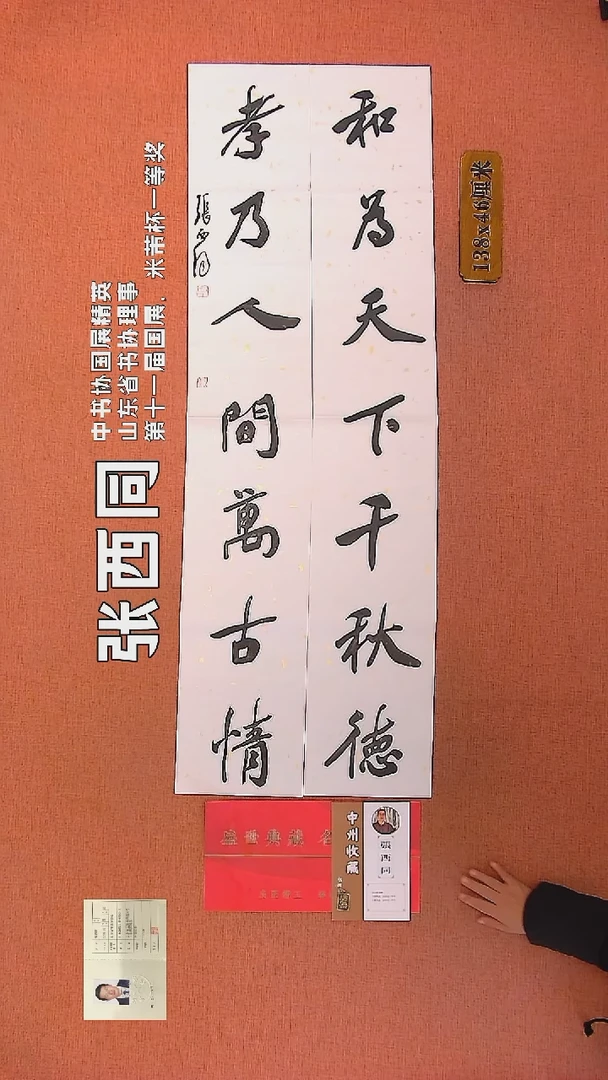 和為天下千秋德
孝乃人間萬古情
張西同
138x46厘米
中书协国展精英
山东省书协理事
第十一届国展、米芾杯一等奖
张西同
中州收藏
張西同